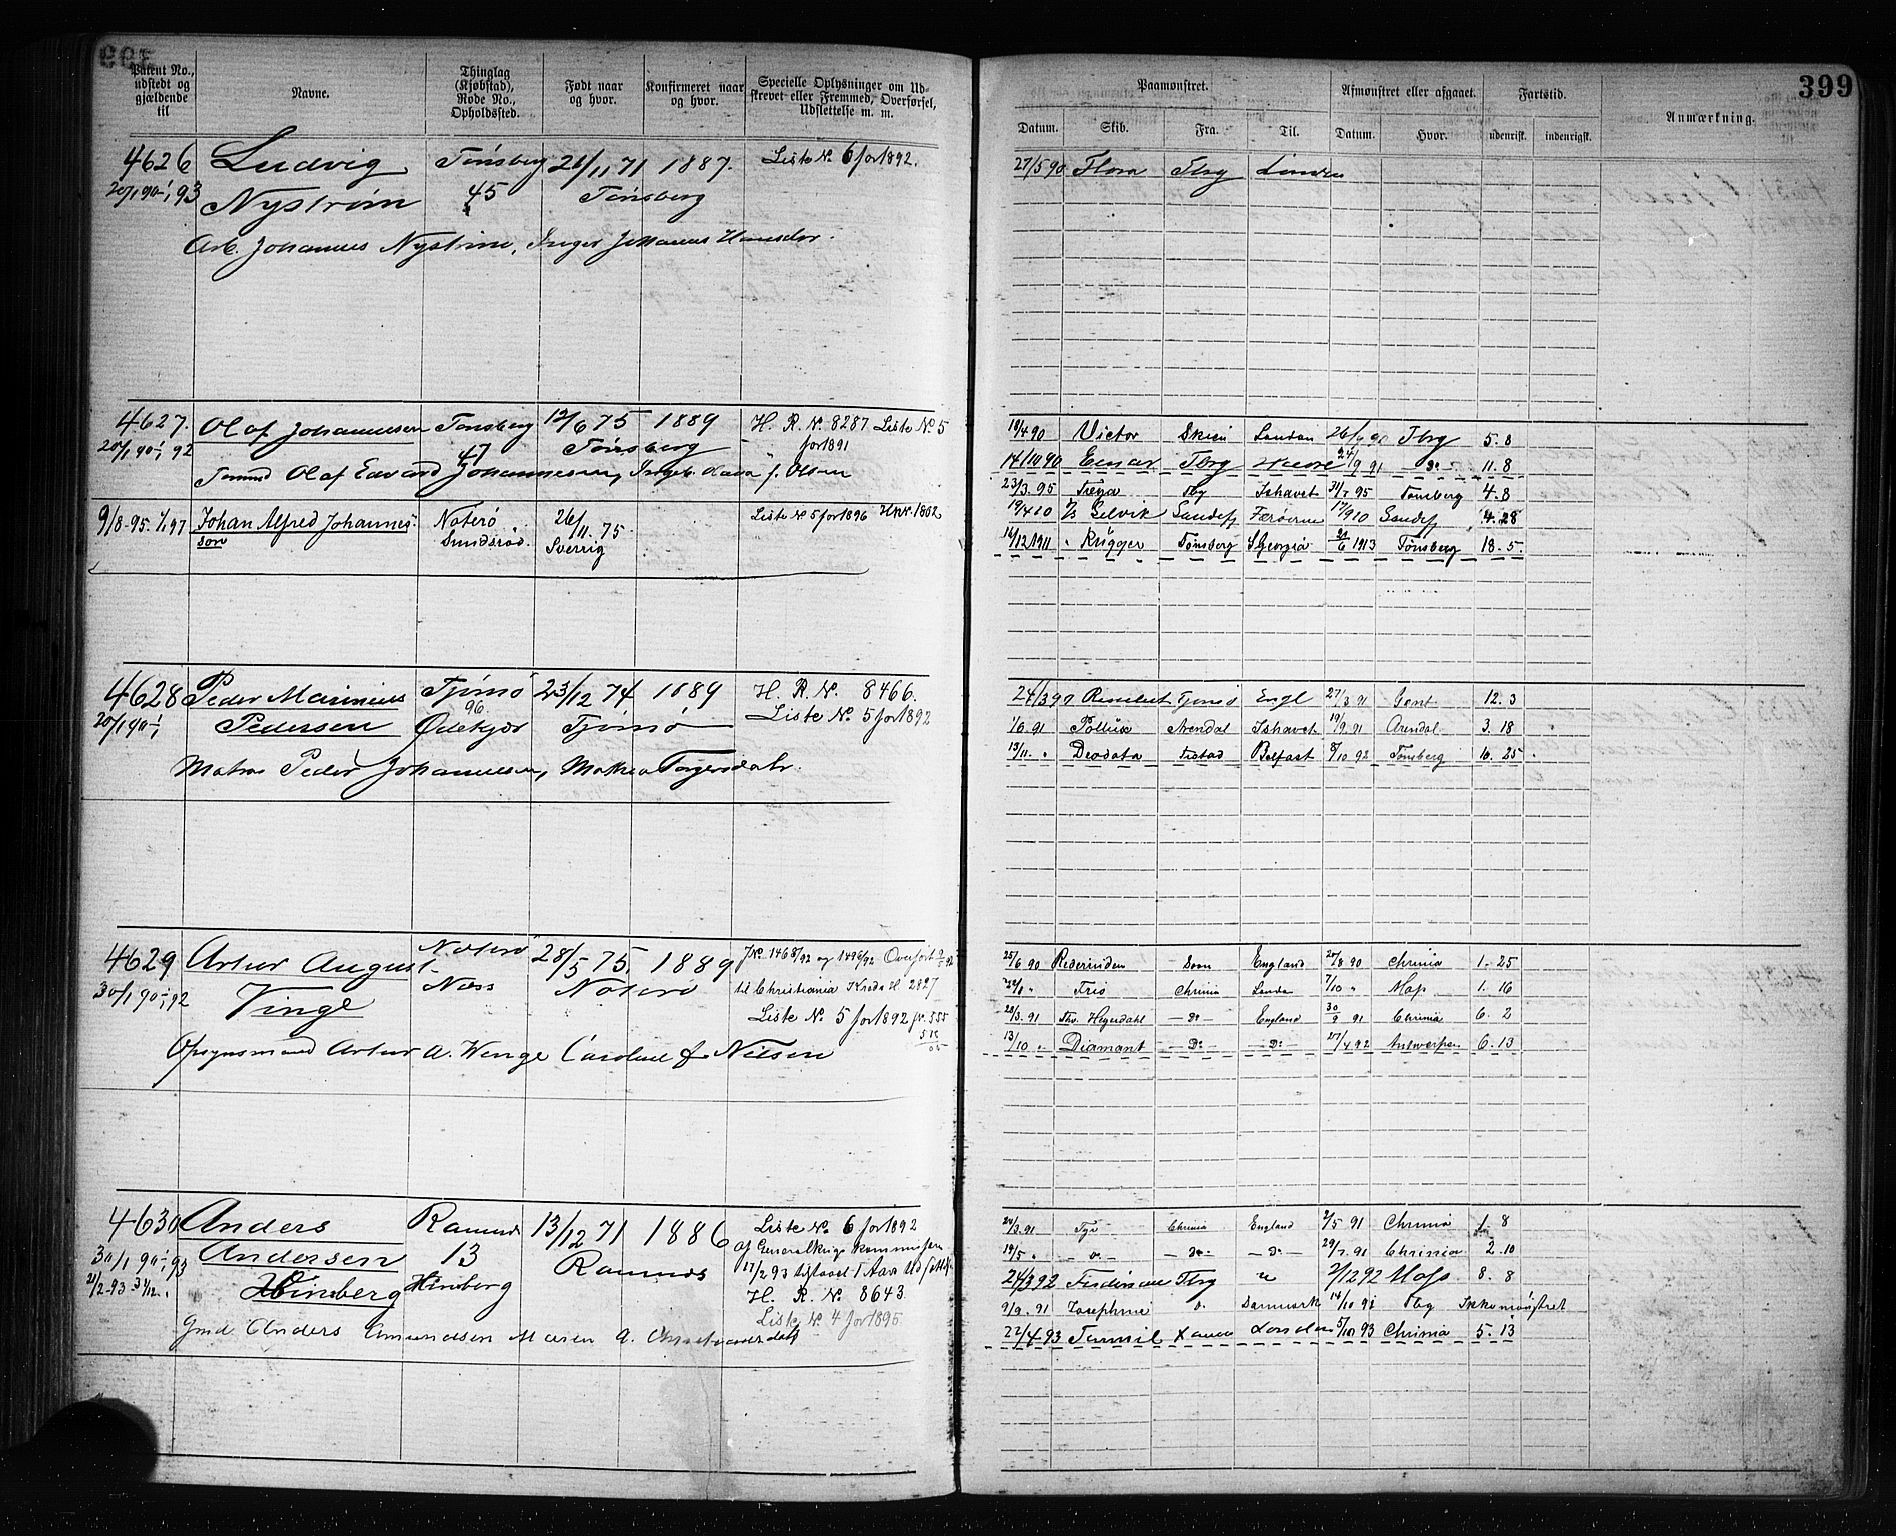 399
Patent No., udstedt og gjældende til
Navne.
Thinglag (Kjøbstad), Rode No., Opholdssted.
Født naar og hvor.
Konfirmeret naar og hvor.
Specielle Oplysninger om Udskrevet eller Fremmed, Overførsel, Udslettelse m. m.
Paamønstret.
Afmønstret eller afgaaet.
Fartstid.
Anmærkning.
Datum. Skib. Fra. Til. Datum. Hvor. udenrigst. indenrigst.
4626 Ludvig Tønsberg 21/11 71 1887. Liste No 6 for 1892.
20/1 90 - 1/1 93 Nystrøm 45 Tønsberg
Arb. Johannes Nystrøm, Inger Johanne Hansdr.
27/5 90 Flora Tbrg London
4627. Olaf Johannesen Tønsberg 12/6 75 1889 H. R. No. 8287 Liste No 5
20/1 90 - 1/1 92 47 Tønsberg for 1891
Tømmd Olaf Edvard Johannesen, J. Olsen
9/8-95. 1/1 97 Johan Alfred Johannes- Nøterø 26/11. 75 Liste No 5 for 1896
son Sundsrød. Sverrig
4/90 Victor Skien London 26/9 90 Tbrg 5. 8
14/10 90 Einar Tbrg Havre 24/9 91 Do 11. 8
23/3. 95 Freya Tbg Ishavet 31/7 95 Tønsberg 4. 8
19/4 10 Selvik Sandefj Færøerne 17/9 10 Sandefj 4. 28
16/12 1911 Krüger Tønsberg S Georgia 21/6 1913 Tønsberg 18. 5.
4628 Peder Marinius Tjømø 23/12 74 1889 H. R. No. 8466.
20/1 90 - 1/1 Pedersen 96. Ødekjær Tjømø Liste No. 5 for 1892
Matros Peder Johannesen, Mathea Torgersdatr.
24/3 90 Resolut Tjømø Engl 27/3 91 Gent 12. 3
1/6. 91 Pollux Arendal Ishavet 19/9. 91 Arendal. 3. 18
13/11. " Deodata Frstad Belfast 8/10 92 Tønsberg 10. 25
4629 Artur August Nøterø 28/5 75. 1889 JNo 1468/92 og 1496/92 Overført
30/1 90 - 1/1 92 Vinge Næss Nøterø til Christiania Kreds H 2827
Liste No. 5 for 1892
Opsynsmand Artur A. Wenge Caroline J. Nilsen
25/6 90 Rederinden Dom England 20/8 90 Chrinia 1. 25
Frio Chrinia London 7/10 " Moss 1. 16
28/3. 91 Thv. Heyerdahl Do England 30/9 91 Chrinia 6. 2
13/10 " Diamant Do Do 27/4 92 Antwerpen 6. 13
4630 Anders Ramnes 13/12 71 1886 Liste No 6 for 1892
30/1 90 - 1/1 93 Andersen 13 Ramnes af Generalkrigskommissæren
21/2-93 31/12. Himberg Himberg 17/2 93 tilstaaet 1 Aars Udsættelse
H. R. No 8643.
Liste No 4 for 1895
Gmd. Anders Amundsen Maren A. Christiansdatt
24/3. 91 Tyr Chrinia England 2/5 91 Chrinia 1. 8
19/5 " Do Do 29/7. 91 Chrinia 2. 10
24/3 92 Tbrg 2/12 92 Moss 8. 8
9/9. 91 Josephine Danmark 14/10 91 Tbg Ikkemønstret
22/4 93 London 5/10 93 Chrinia 5. 13